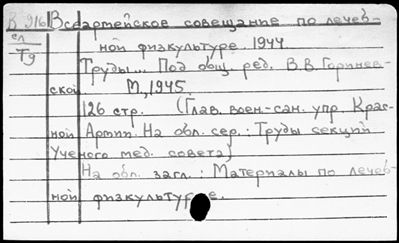 В 916 Всеармейское совещание по лечеб-
сл
ной физкультуре. 1944
Тд
Труды... Под общ. ред. В.В. Горинев-
ской М., 1945.
126 стр. (Глав. воен.-сан. упр. Крас-
ной Армии. На обл. сер.: Труды секций
Ученого мед. совета)
На обл. загл.: Материалы по лечеб-
ной физкультуре.